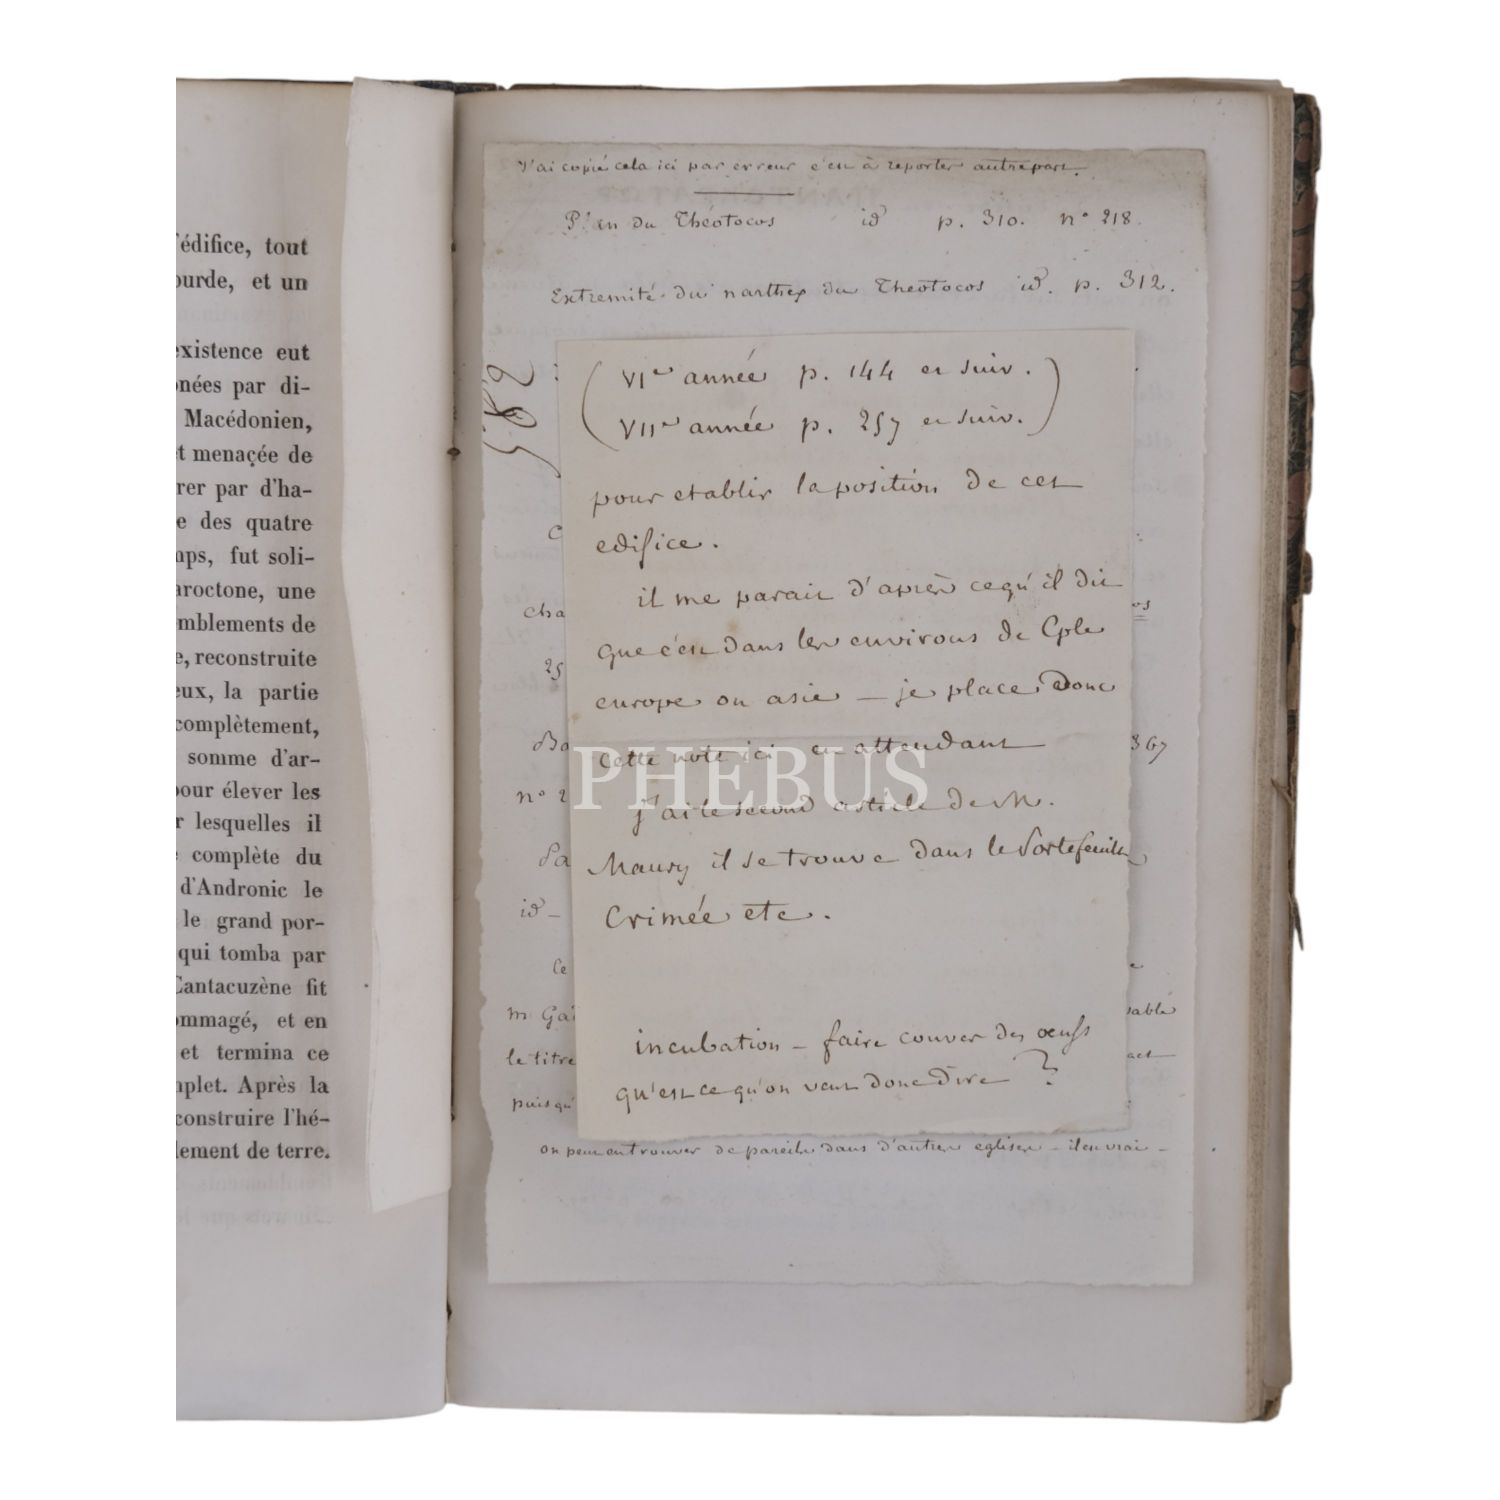 l'édifice, tout
ourde, et un
existence eut
nées par di-
Macédonien,
et menaçée de
rer par d'ha-
e des quatre
mps, fut soli-
aroctone, une
emblements de
e, reconstruite
eux, la partie
complètement,
somme d'ar-
pour élever les
r lesquelles il
complète du
d'Andronic le
le grand por-
qui tomba par
Cantacuzène fit
ommagé, et en
et termina ce
mplet. Après la
construire l'hé-
lement de terre.
J'ai copié cela ici par erreur c'est à reporter autre part.
Plan du Théotocos id p. 310. n° 218.
Extremité du narthex du Theotocos id. p. 312.
582
(VIe année p. 144 et suiv.
VIIe année p. 257 et suiv.)
pour etablir la position de cet
edifice.
il me parait d'après ce qu'il dit
que c'est dans les environs de Cple
europe ou asie — je place donc
cette note ici en attendant
j'ai le second article de M.
Maury il se trouve dans le Portefeuille
Crimée etc.
incubation — faire couver des œufs
qu'est ce qu'on veut donc dire ?
C
cha
os
25
Ba
367
n° 2
Pa
id —
Ce
m Ga
sable
le titre
act
puis qu'
on peut en trouver de pareils dans d'autres eglises — il est vrai —
PHEBUS